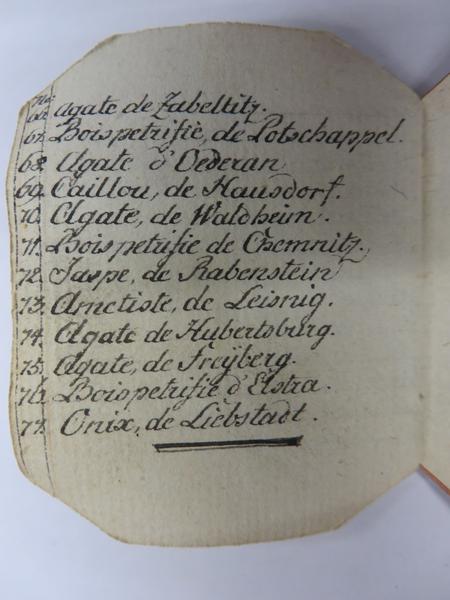 No.
66. Agate de Zabeltitz.
67. Bois petrifiè, de Potschappel.
68. Agate d'Oederan
69. Caillou, de Hausdorf.
70. Agate, de Waldheim.
71. Bois petrifie de Chemnitz.
72. Jaspe, de Rabenstein
73. Ametiste, de Leisnig.
74. Agate de Hubertsburg.
75. Agate, de Freÿberg.
76. Bois petrifie d'Elstra.
77. Onix, de Liebstadt.